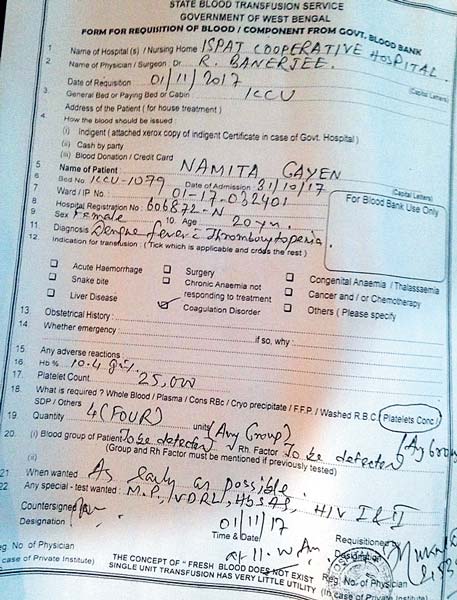 STATE BLOOD TRANSFUSION SERVICE
GOVERNMENT OF WEST BENGAL
FORM FOR REQUISITION OF BLOOD / COMPONENT FROM GOVT. BLOOD BANK
1 Name of Hospital (s) / Nursing Home ISPAT COOPERATIVE HOSPITAL
2 Name of Physician / Surgeon Dr R. BANERJEE.
Date of Requisition 01/11/2017 (Capital Letters)
3. General Bed or Paying Bed or Cabin ICCU
Address of the Patient ( for house treatment )
4. How the blood should be issued :
(i) Indigent ( attached xerox copy of indigent Certificate in case of Govt. Hospital )
(ii) Cash by party
(iii) Blood Donation / Credit Card
5 Name of Patient : NAMITA GAYEN (Capital Letters)
6 Bed No. ICCU-1079 Date of Admission 31/10/17
7 Ward / IP No. : 01-17-032401 For Blood Bank Use Only
8 Hospital Registration No : 606872-N
9 Sex Female 10. Age 20 yrs.
11 Diagnosis Dengue fever c Thrombocytopenia.
12. Indication for transfusion : ( Tick which is applicable and cross the rest )
Acute Haemorrhage Surgery Congenital Anaemia / Thalassaemia
Snake bite Chronic Anaemia not responding to treatment Cancer and / or Chemotherapy
Liver Disease Coagulation Disorder Others ( Please specify
13. Obstetrical History :
14. Whether emergency : if so, why :
15. Any adverse reactions :
16. Hb % 10.4 gm%
17. Platelet Count 25,000
18. What is required ? Whole Blood / Plasma / Cons RBc / Cryo precipitate / F.F.P. / Washed R.B.C. Platelets Conc /
SDP / Others
19. Quantity 4 (FOUR) units (Any Group)
20. (i) Blood group of Patient To be detected Rh. Factor To be detected (Any Group
(Group and Rh Factor must be mentioned if previously tested)
(ii)
21. When wanted As early as possible.
22. Any special - test wanted : M.P., VDRL, HbSAg, HIV I & II
Countersigned 01/11/17 Requisitioned by
Designation : Time & Date Designation
at 11.
Reg. No. of Physician Reg. No. of Physician
(in case of Private Institute) (In case of Private Institute)
THE CONCEPT OF "FRESH BLOOD DOES NOT EXIST
SINGLE UNIT TRANSFUSION HAS VERY LITTLE UTILITY